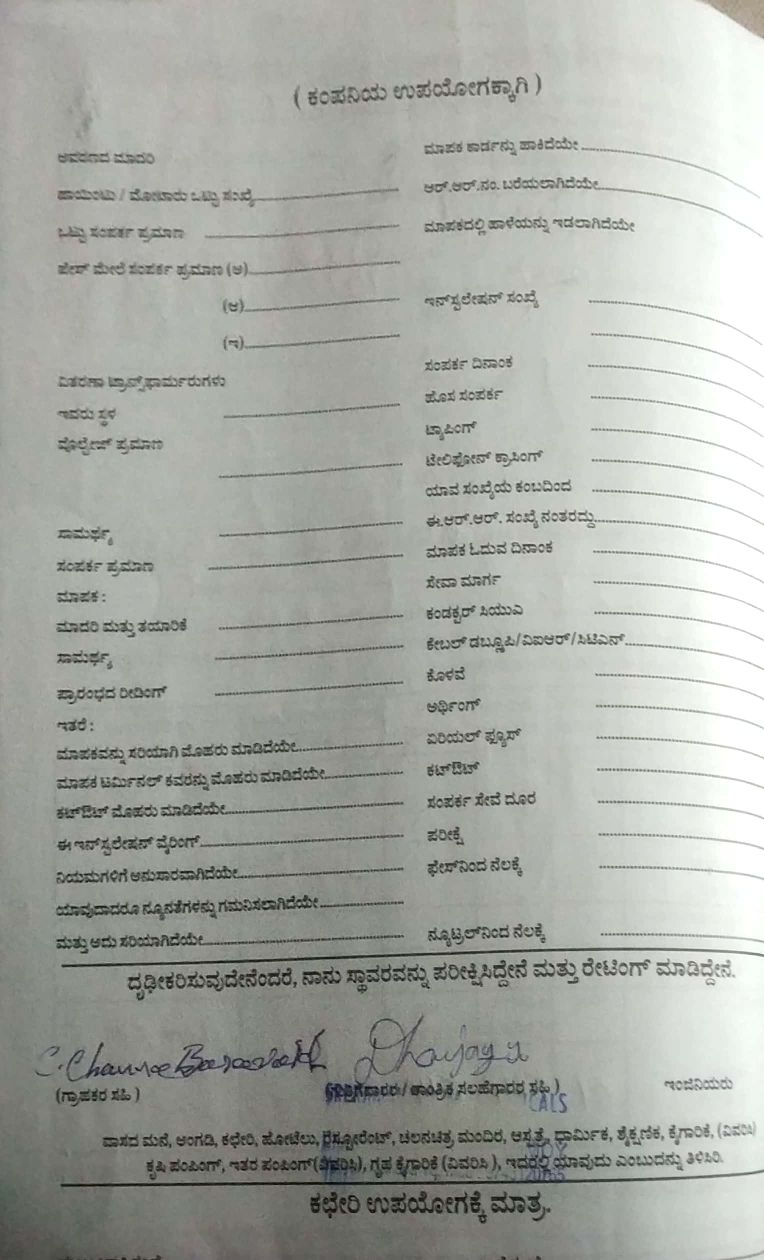 ( ಕಂಪನಿಯ ಉಪಯೋಗಕ್ಕಾಗಿ )
ಆವರಣದ ಮಾದರಿ
ಪಾಯಿಂಟು / ಮೋಟಾರು ಒಟ್ಟು ಸಂಖ್ಯೆ
ಒಟ್ಟು ಸಂಪರ್ಕ ಪ್ರಮಾಣ
ಫೇಸ್ ಮೇಲೆ ಸಂಪರ್ಕ ಪ್ರಮಾಣ (ಅ)
(ಆ)
(ಇ)
ವಿತರಣಾ ಟ್ರಾನ್ಸ್‌ಫಾರ್ಮರುಗಳು
ಇವರು ಸ್ಥಳ
ವೊಲ್ಟೇಜ್ ಪ್ರಮಾಣ
ಸಾಮರ್ಥ್ಯ
ಸಂಪರ್ಕ ಪ್ರಮಾಣ
ಮಾಪಕ :
ಮಾದರಿ ಮತ್ತು ತಯಾರಿಕೆ
ಸಾಮರ್ಥ್ಯ
ಪ್ರಾರಂಭದ ರೀಡಿಂಗ್
ಇತರೆ :
ಮಾಪಕವನ್ನು ಸರಿಯಾಗಿ ಮೊಹರು ಮಾಡಿದೆಯೇ
ಮಾಪಕ ಟರ್ಮಿನಲ್ ಕವರನ್ನು ಮೊಹರು ಮಾಡಿದೆಯೇ
ಕಟ್‌ಔಟ್ ಮೊಹರು ಮಾಡಿದೆಯೇ
ಈ ಇನ್‌ಸ್ಟಲೇಷನ್ ವೈರಿಂಗ್
ನಿಯಮಗಳಿಗೆ ಅನುಸಾರವಾಗಿದೆಯೇ
ಯಾವುದಾದರೂ ನ್ಯೂನತೆಗಳನ್ನು ಗಮನಿಸಲಾಗಿದೆಯೇ
ಮತ್ತು ಅದು ಸರಿಯಾಗಿದೆಯೇ
ಮಾಪಕ ಕಾರ್ಡನ್ನು ಹಾಕಿದೆಯೇ
ಆರ್.ಆರ್.ನಂ. ಬರೆಯಲಾಗಿದೆಯೇ
ಮಾಪಕದಲ್ಲಿ ಹಾಳೆಯನ್ನು ಇಡಲಾಗಿದೆಯೇ
ಇನ್‌ಸ್ಟಲೇಷನ್ ಸಂಖ್ಯೆ
ಸಂಪರ್ಕ ದಿನಾಂಕ
ಹೊಸ ಸಂಪರ್ಕ
ಟ್ಯಾಪಿಂಗ್
ಟೇಲಿಫೋನ್ ಕ್ರಾಸಿಂಗ್
ಯಾವ ಸಂಖ್ಯೆಯ ಕಂಬದಿಂದ
ಈ.ಆರ್.ಆರ್. ಸಂಖ್ಯೆ ನಂತರದ್ದು
ಮಾಪಕ ಓದುವ ದಿನಾಂಕ
ಸೇವಾ ಮಾರ್ಗ
ಕಂಡಕ್ಟರ್ ಸಿಯುಎ
ಕೇಬಲ್ ಡಬ್ಲ್ಯೂಪಿ/ವಿಐಆರ್/ಸಿಟಿಎಸ್
ಕೊಳವೆ
ಅರ್ಥಿಂಗ್
ಏರಿಯಲ್ ಫ್ಯೂಸ್
ಕಟ್‌ಔಟ್
ಸಂಪರ್ಕ ಸೇವೆ ದೂರ
ಪರೀಕ್ಷೆ
ಫೇಸ್‌ನಿಂದ ನೆಲಕ್ಕೆ
ನ್ಯೂಟ್ರಲ್‌ನಿಂದ ನೆಲಕ್ಕೆ
ದೃಢೀಕರಿಸುವುದೇನೆಂದರೆ, ನಾನು ಸ್ಥಾವರವನ್ನು ಪರೀಕ್ಷಿಸಿದ್ದೇನೆ ಮತ್ತು ರೇಟಿಂಗ್ ಮಾಡಿದ್ದೇನೆ.
(ಗ್ರಾಹಕರ ಸಹಿ) (ಗುತ್ತಿಗೆದಾರರ/ ತಾಂತ್ರಿಕ ಸಲಹೆಗಾರರ ಸಹಿ ) ಇಂಜಿನಿಯರು
ವಾಸದ ಮನೆ, ಅಂಗಡಿ, ಕಛೇರಿ, ಹೋಟೆಲು, ರೆಸ್ಟೋರೆಂಟ್, ಚಲನಚಿತ್ರ ಮಂದಿರ, ಆಸ್ಪತ್ರೆ, ಧಾರ್ಮಿಕ, ಶೈಕ್ಷಣಿಕ, ಕೈಗಾರಿಕೆ, (ವಿವರಿಸಿ)
ಕೃಷಿ ಪಂಪಿಂಗ್, ಇತರ ಪಂಪಿಂಗ್(ವಿವರಿಸಿ), ಗೃಹ ಕೈಗಾರಿಕೆ (ವಿವರಿಸಿ ), ಇದರಲ್ಲಿ ಯಾವುದು ಎಂಬುದನ್ನು ತಿಳಿಸಿರಿ.
ಕಛೇರಿ ಉಪಯೋಗಕ್ಕೆ ಮಾತ್ರ.